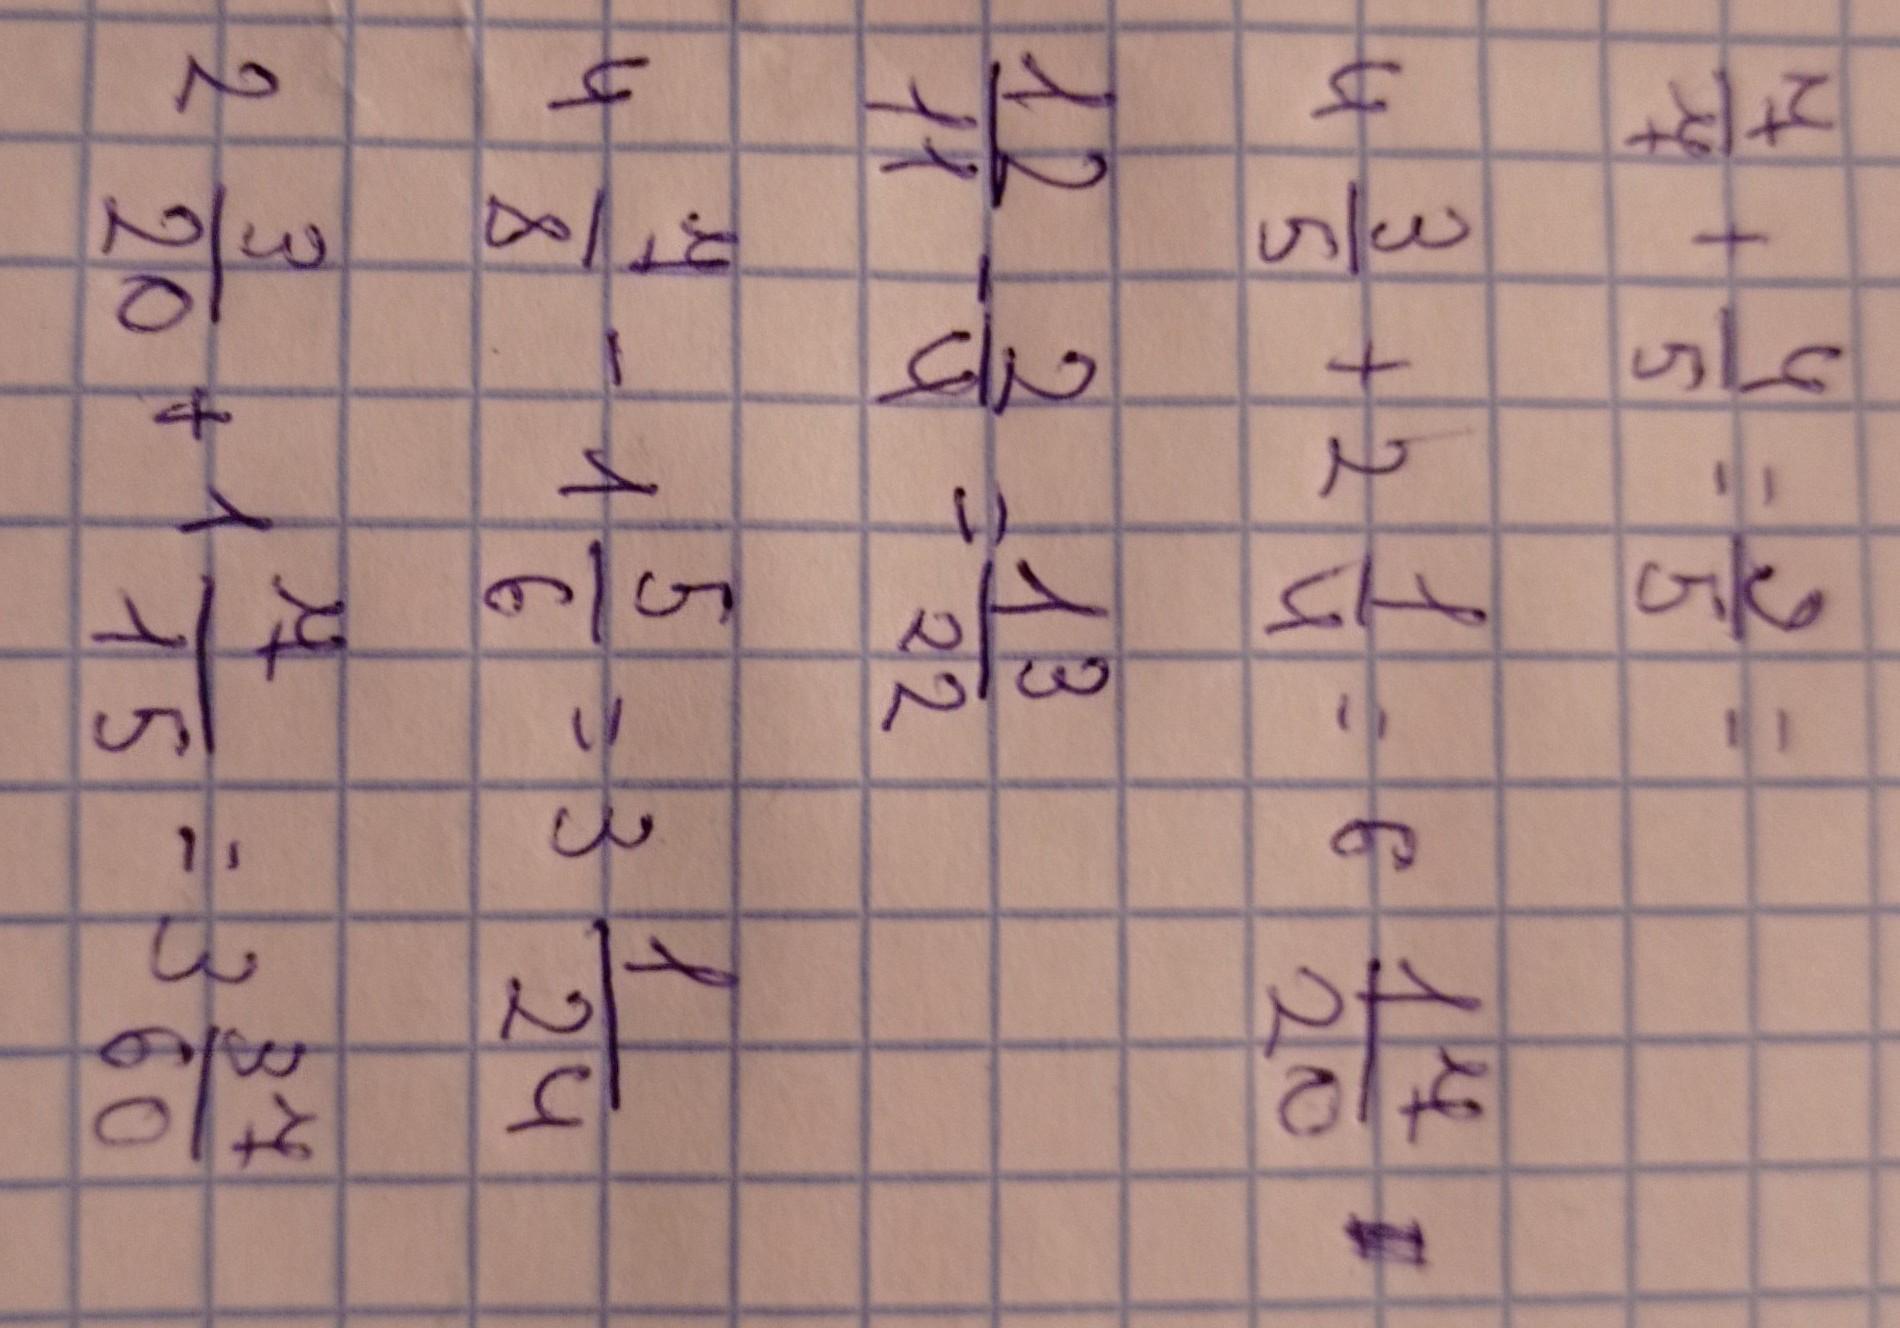 7/7 + 4/5 = 9/5 =
4 3/5 + 2 1/4 = 6 17/20
12/11 - 2/4 = 13/22
4 7/8 - 1 5/6 = 3 1/24
2 3/20 + 1 7/15 = 3 37/60